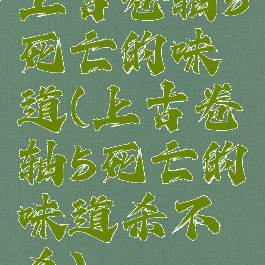 上古卷轴5
死亡的味
道(上古卷
轴5死亡的
味道杀不